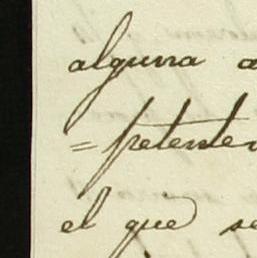 alguna a
=petente
el que se